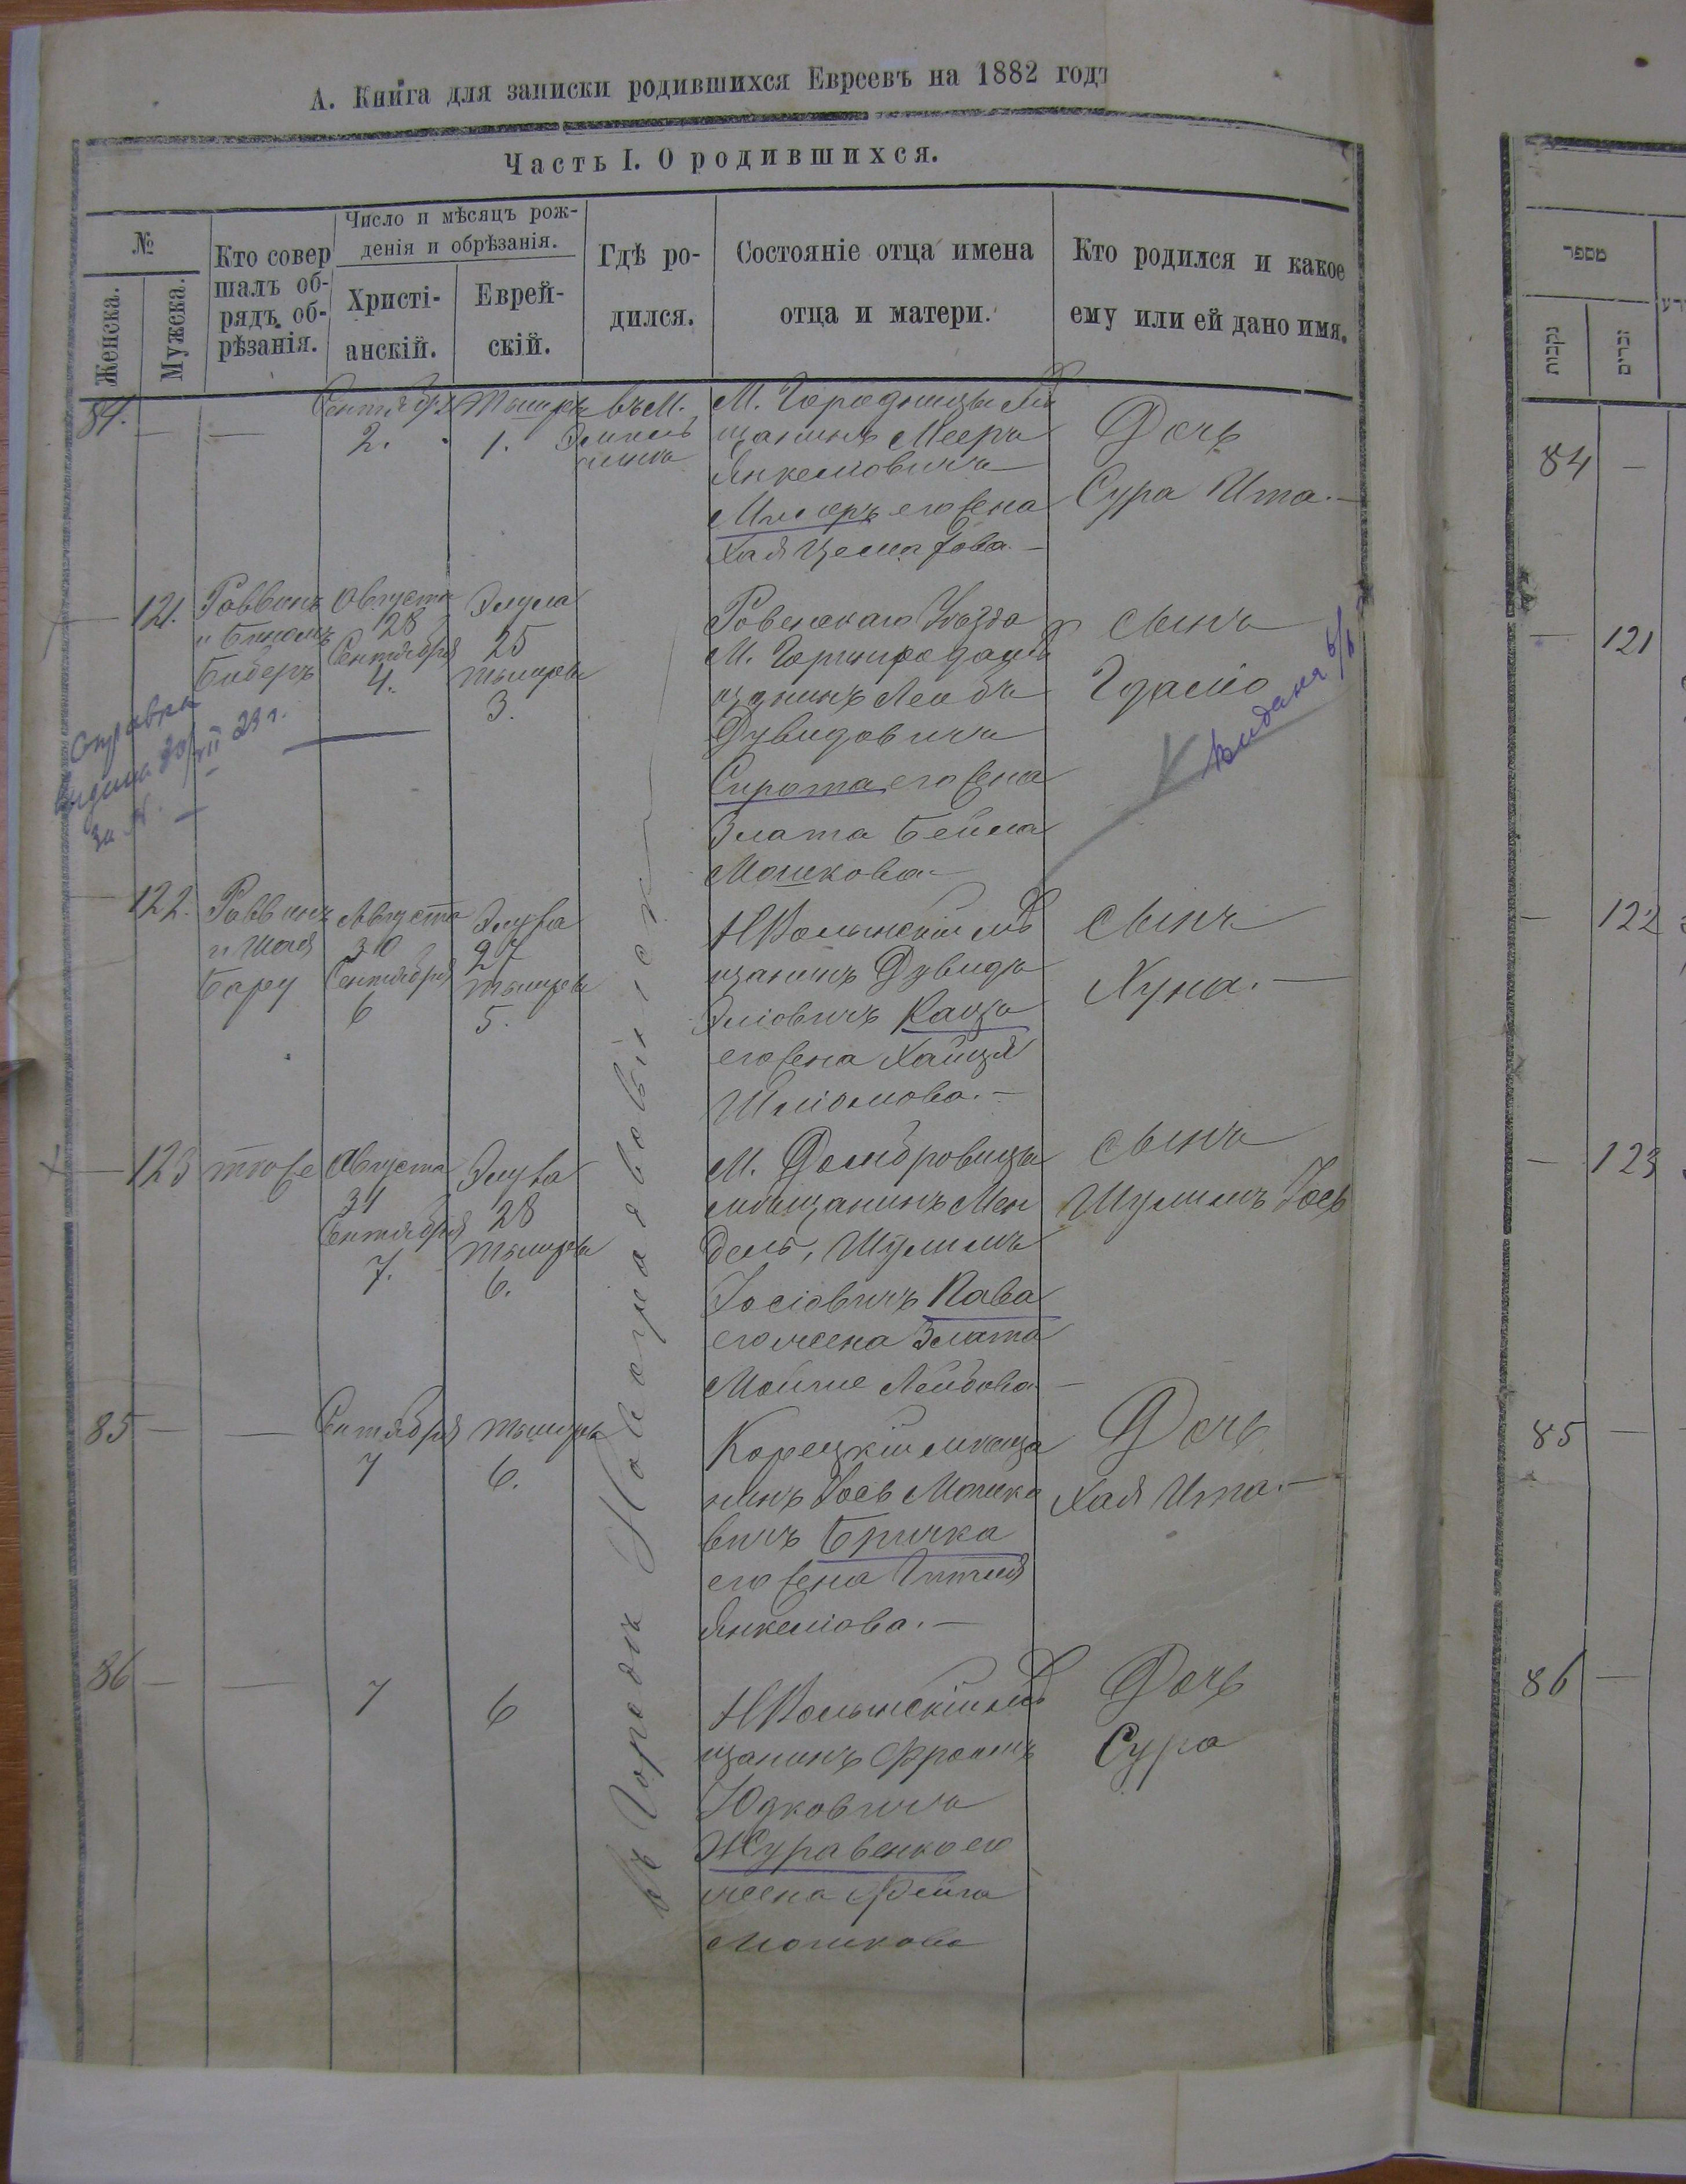 А. Книга для записки родившихся Евреевъ на 1882 годъ
Часть I. О родившихся.
№
Женска.
Мужска.
Кто совер
шалъ об-
рядъ об-
рѣзанія.
Число и мѣсяцъ рож-
денія и обрѣзанія.
Христі-
анскій.
Еврей-
скій.
Гдѣ ро-
дился.
Состояніе отца имена
отца и матери.
Кто родился и какое
ему или ей дано имя.
84.
—
—
Сентября
2.
Тишре
1.
въ М.
М. Городницы мѣ
щанинъ Мееръ
Янкелювичъ
его жена
Хая
Дочь
Сура Ита.—
121.
Раввинъ
и
Биберъ
Августа
28
Сентября
4.
Элула
25
Тишре
3.
Ровенскаго Уѣзда
М.
Лейба
Дувидовичъ
Сирота его жена
Злата Бейла
Мошкова—
Сынъ
Справка
видана 30/VII 29 г.
за №. —
видана
122.
Раввинъ
и Шая
Августа
30
Сентября
6
Элула
27
Тишре
5.
НВолынскій мѣ
щанинъ Дувидъ
Эліовичъ Кацъ
его жена Хайця
Шліомова.—
Сынъ
Хуна.—
123
тоже
Августа
31
Сентября
7.
Элула
28
Тишре
6.
М. Домбровицы
мѣщанинъ Мен
дель, Шулимъ
Іосіовичъ Пава
его жена Злата
Мойше Лейбова—
Сынъ
Шулимъ Іось
85
—
—
Сентября
7
Тишре
6.
Корецкій мѣща
нинъ Іось Мошко
вичъ Бричка
его жена Гитля
Янкеліова.—
Дочь
Хая Ита.—
86
—
—
7
6
НВолынскій мѣ
щанинъ Фроимъ
Юдковичъ
Журавенко его
жена Фейга
Мошкова
Дочь
Сура
въ Городѣ Новоградволынскѣ
מספר
נקבות
זכרים
84 —
— 121
— 122
— 123
85 —
86 —